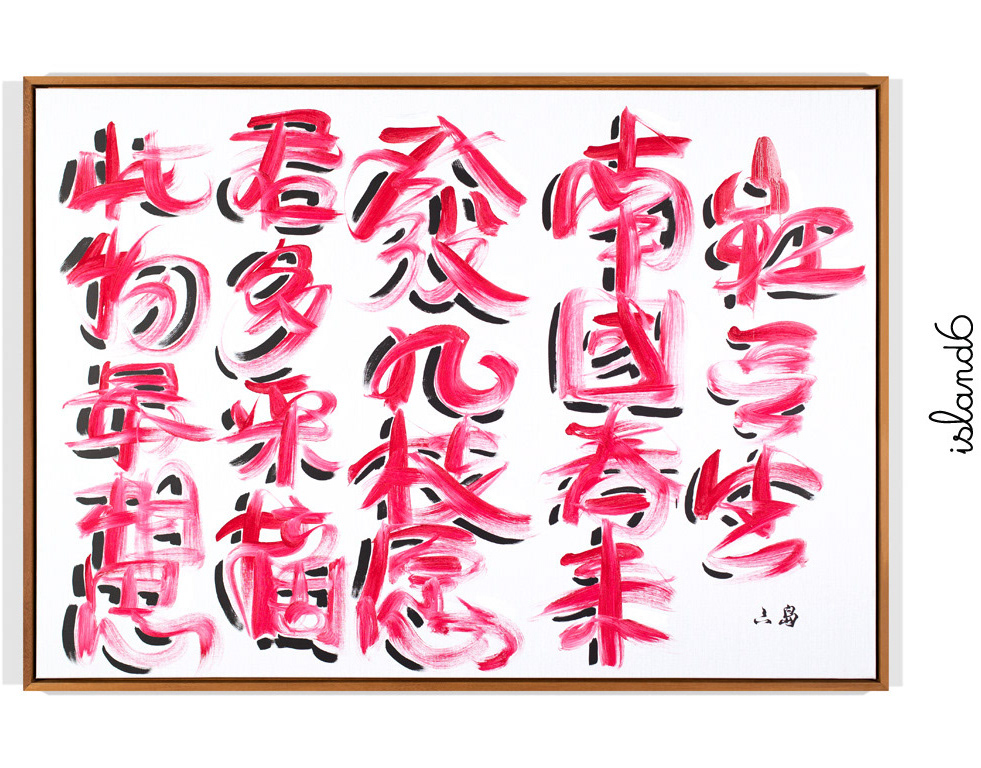 紅豆生
南國春來
發几枝愿
君多采擷
此物最相思
六島
island6